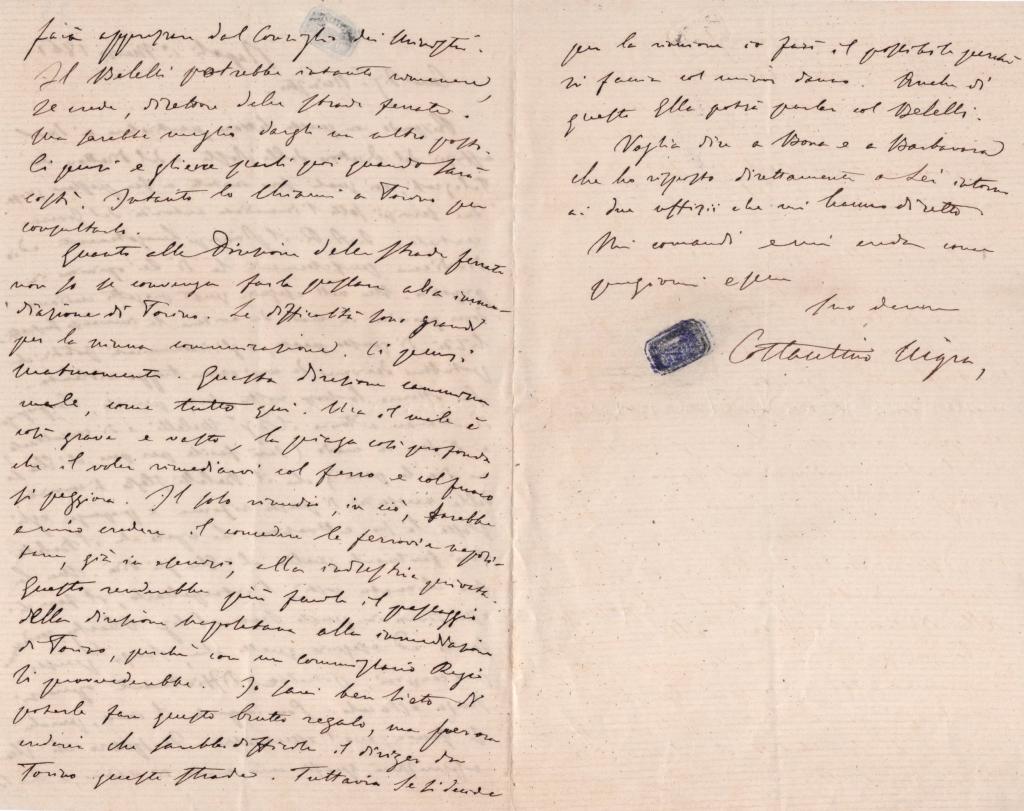 farà approvare dal Consiglio dei Ministri.
Il Belelli potrebbe intanto rimanere,
se crede, direttore delle strade ferrate.
Ma sarebbe meglio dargli un altro posto.
Ci pensi e gliene parli poi quando sarà
costì. Intanto lo chiami a Torino per
consultarlo.
Quanto alla Direzione delle strade ferrate
non so se convenga farla passare alla imme-
diazione di Torino. Le difficoltà sono grandi
per la niuna comunicazione. Ci pensi
maturamente. Questa direzione cammina
male, come tutto qui. Ma il male è
così grave e vasto, la piaga così profonda
che il voler rimediarvi col ferro e col fuoco
si peggiora. Il solo rimedio, in ciò, sarebbe
a mio credere il concedere le ferrovie napoli-
tane, già in esercizio, alla industria privata.
Questo renderebbe più facile il passaggio
della direzione napoletana alla immediazione
di Torino, perché con un Commissario Regio
si provvederebbe. Io sarei ben lieto di
poterle fare questo brutto regalo, ma per ora
crederei che sarebbe difficile il diriger da
Torino queste strade. Tuttavia se si decide
per la riunione io farò il possibile perché
si faccia col minor danno. Anche di
questo Ella potrà parlar col Belelli.
Voglia dire a Bona e a Barbavara
che ho risposto direttamente a Lei intorno
ai due uffizii che mi hanno diretto
Mi comandi e mi creda come
pregiomi essere
Suo devmo
Costantino Nigra,